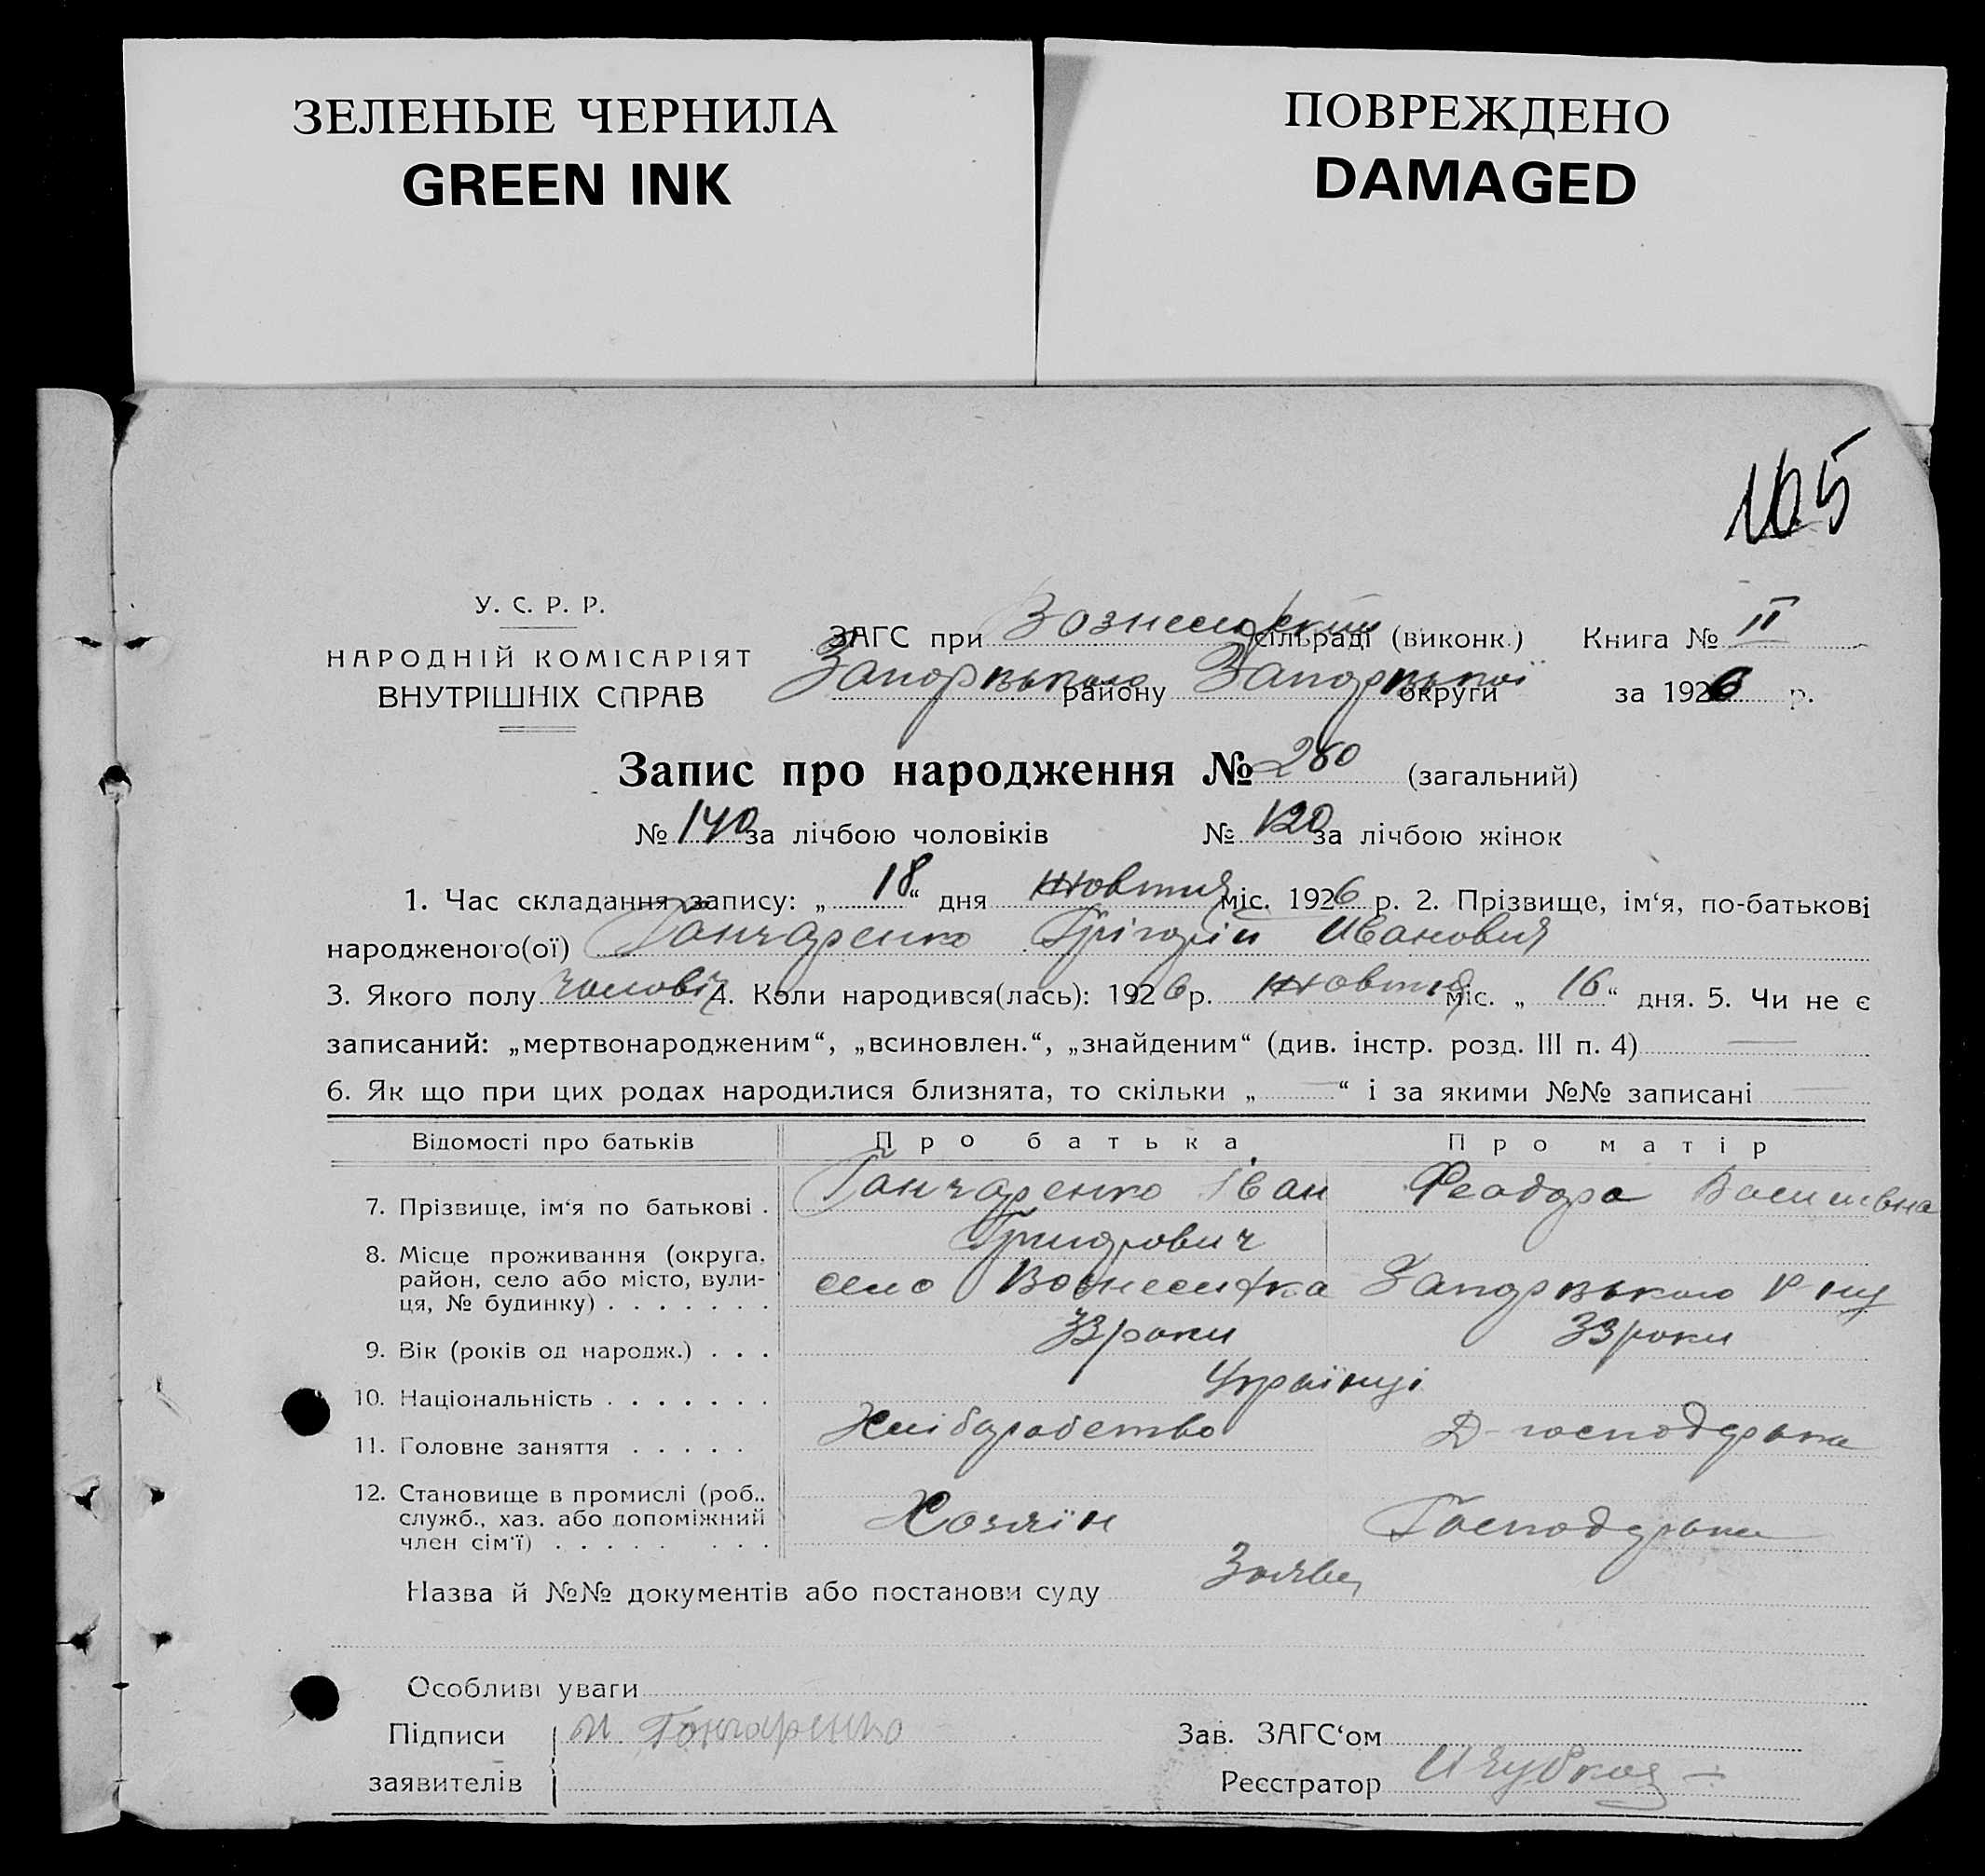 ЗЕЛЕНЫЕ ЧЕРНИЛА
GREEN INK
ПОВРЕЖДЕНО
DAMAGED
165
У. С. Р. Р.
НАРОДНІЙ КОМІСАРІЯТ
ВНУТРІШНІХ СПРАВ
ЗАГС при Вознесенській сільраді (виконк.) Книга № II
Запорізького району Запорізької округи за 1926 р.
Запис про народження № 260 (загальний)
№ 140 за лічбою чоловіків № 120 за лічбою жінок
1. Час складання запису: „ 18 “ дня жовтня міс. 1926 р. 2. Прізвище, ім‘я, по-батькові
народженого(ої) Гончаренко Григорій Иванович
3. Якого полу чоловіч. 4. Коли народився(лась): 1926 р. жовтня міс. „ 16 “ дня. 5. Чи не є
записаний: „мертвонародженим“, „всиновлен.“, „знайденим“ (див. інстр. розд. III п. 4) —
6. Як що при цих родах народилися близнята, то скільки „ — “ і за якими №№ записані —
Відомості про батьків Про батька Про матір
7. Прізвище, ім‘я по батькові . Гончаренко Іван Феодора Василівна
Григорович
8. Місце проживання (округа,
район, село або місто, вули-
ця, № будинку) . . . . . . . село Вознесенка Запорізького р-ну
9. Вік (років од народж.) . . . 33 роки 33 роки
10. Національність . . . . . . . Українці
11. Головне заняття . . . . . Хліборобство Д-господарька
12. Становище в промислі (роб.,
служб., хаз. або допоміжний
член сім‘ї) . . . . . . . . Хозяїн Господарька
Назва й №№ документів або постанови суду Заява
Особливі уваги
Підписи И Гончаренко Зав. ЗАГС‘ом
заявителів Реєстратор